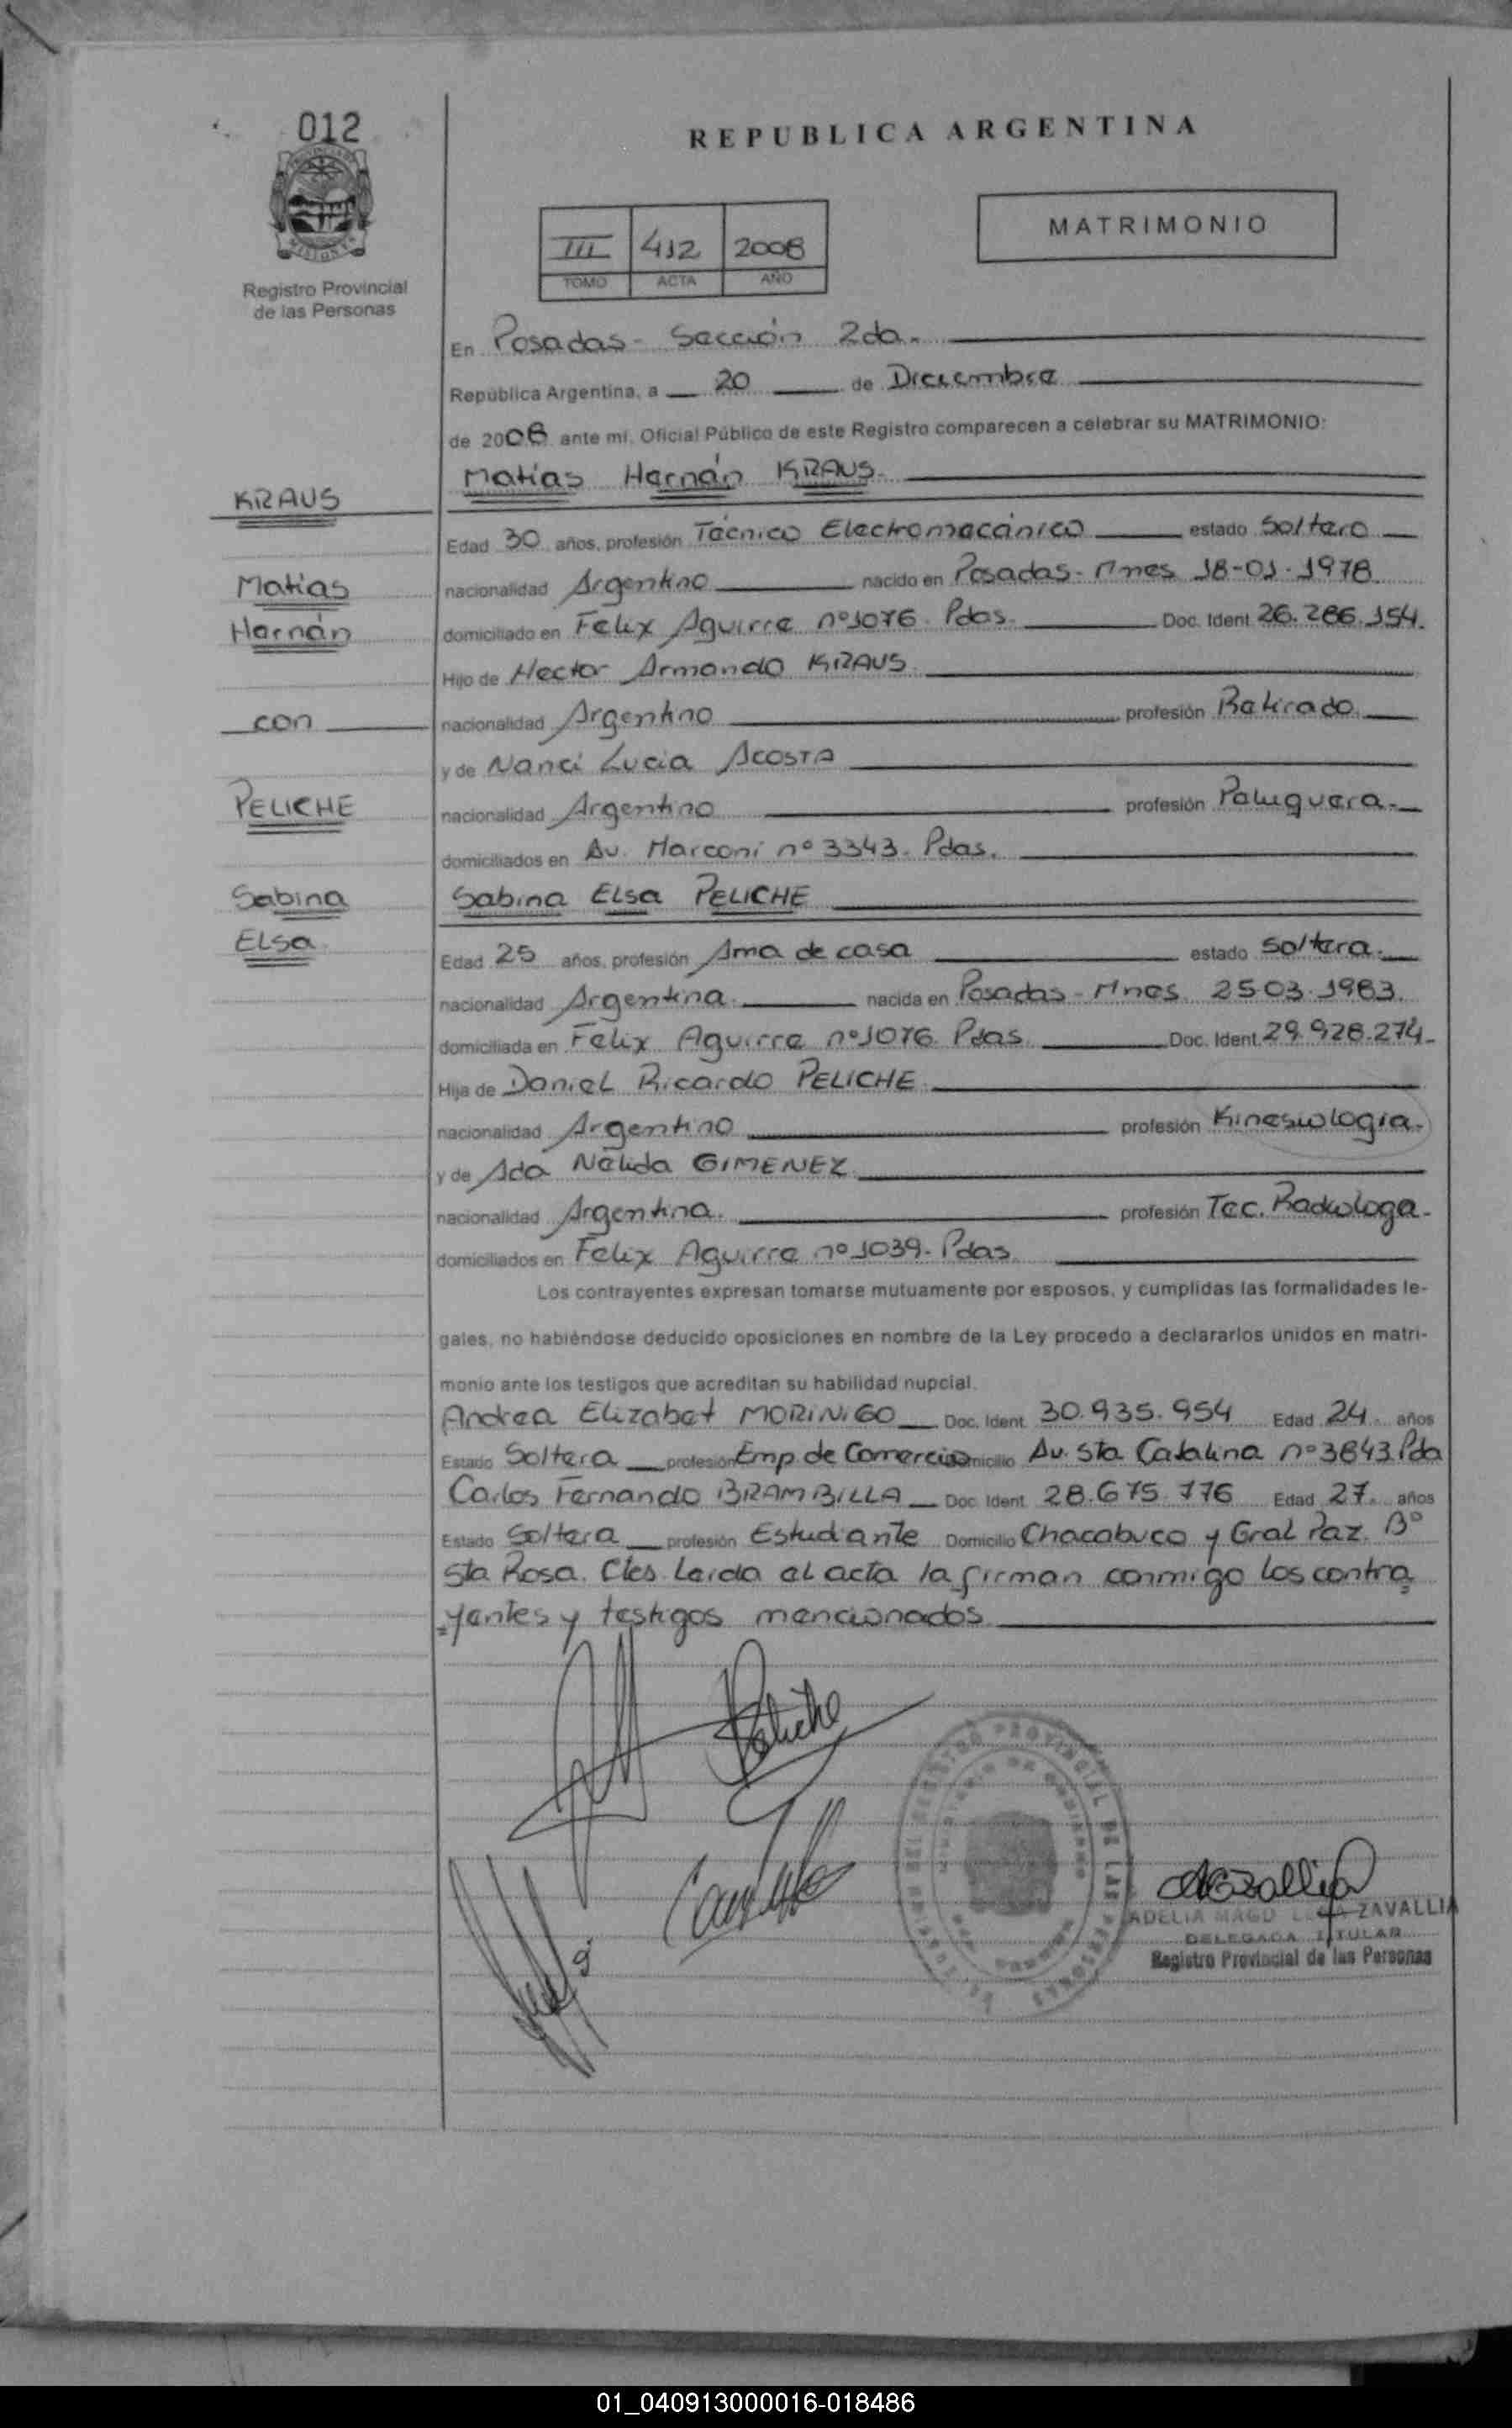 012
REPUBLICA ARGENTINA
MATRIMONIO
III 412 2008
TOMO ACTA AÑO
Registro Provincial
de las Personas
En Posadas - Sección 2da.
República Argentina, a 20 de Diciembre
de 2008 ante mí, Oficial Público de este Registro comparecen a celebrar su MATRIMONIO:
Matías Hernán KRAUS
KRAUS
Edad 30 años, profesión Técnico Electromecánico estado Soltero
Matías
nacionalidad Argentino nacido en Posadas - Mnes 18-01-1978
Hernán
domiciliado en Felix Aguirre nº1076. Pdas. Doc. Ident. 26.286.154.
Hijo de Hector Armando KRAUS
con
nacionalidad Argentino profesión Retirado
y de Nanci Lucia ACOSTA
PELICHE
nacionalidad Argentino profesión Peluquera.
domiciliados en Av. Marconi nº 3343. Pdas.
Sabina
Sabina Elsa PELICHE
Elsa
Edad 25 años, profesión Ama de casa estado Soltera.
nacionalidad Argentina. nacida en Posadas - Mnes 25 03.1983.
domiciliada en Felix Aguirre nº1076 Pdas. Doc. Ident. 29.928.274.
Hija de Daniel Ricardo PELICHE
nacionalidad Argentino profesión Kinesiologia.
y de Ada Nélida GIMENEZ
nacionalidad Argentina. profesión Tec. Radiologa.
domiciliados en Felix Aguirre nº 1039. Pdas.
Los contrayentes expresan tomarse mutuamente por esposos, y cumplidas las formalidades le-
gales, no habiéndose deducido oposiciones en nombre de la Ley procedo a declararlos unidos en matri-
monio ante los testigos que acreditan su habilidad nupcial.
Andrea Elizabet MORINIGO Doc. Ident. 30.935.954 Edad 24 años
Estado Soltera profesión Emp. de Comercio Domicilio Av. Sta Catalina nº 3843 Pda
Carlos Fernando BRAMBILLA Doc. Ident. 28.675.776 Edad 27. años
Estado Soltera profesión Estudiante Domicilio Chacabuco y Gral Paz. Bº
Sta Rosa. Ctes. Leida el acta la firman conmigo los contra
=yentes y testigos mencionados.
Peliche
ZAVALLIA
DELEGADA TITULAR
Registro Provincial de las Personas
01_040913000016-018486